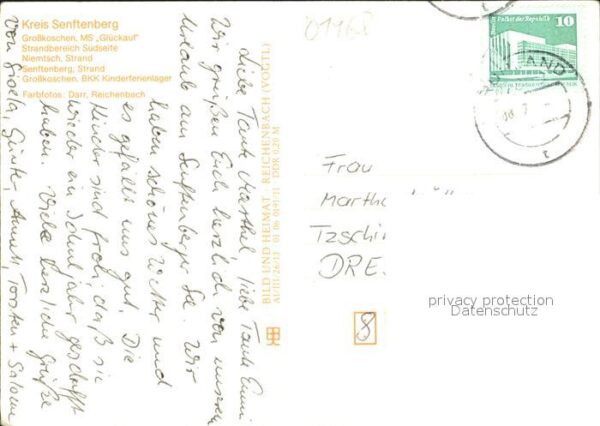 Kreis Senftenberg
Großkoschen, MS „Glückauf"
Strandbereich Südseite
Niemtsch, Strand
Senftenberg, Strand
Großkoschen, BKK Kinderferienlager
Farbfotos: Darr, Reichenbach
Liebe Tante Marthel, liebe Tante Emmi
Wir grüßen Euch herzlich von unserem
Urlaub am Senftenberger See. Wir
haben schönes Wetter und
es gefällt uns gut. Die
Kinder sind froh, daß sie
wieder ein Schuljahr geschafft
haben. Viele herzliche Grüße
von Gisela, Günter, Annett, Torsten +
BILD UND HEIMAT · REICHENBACH (VOGTL)
A1/III/26/13 01 06 0191/11 DDR 0,20 M
Palast der Republik
10
Frau
Martha
DRE.
8
privacy protection
Datenschutz